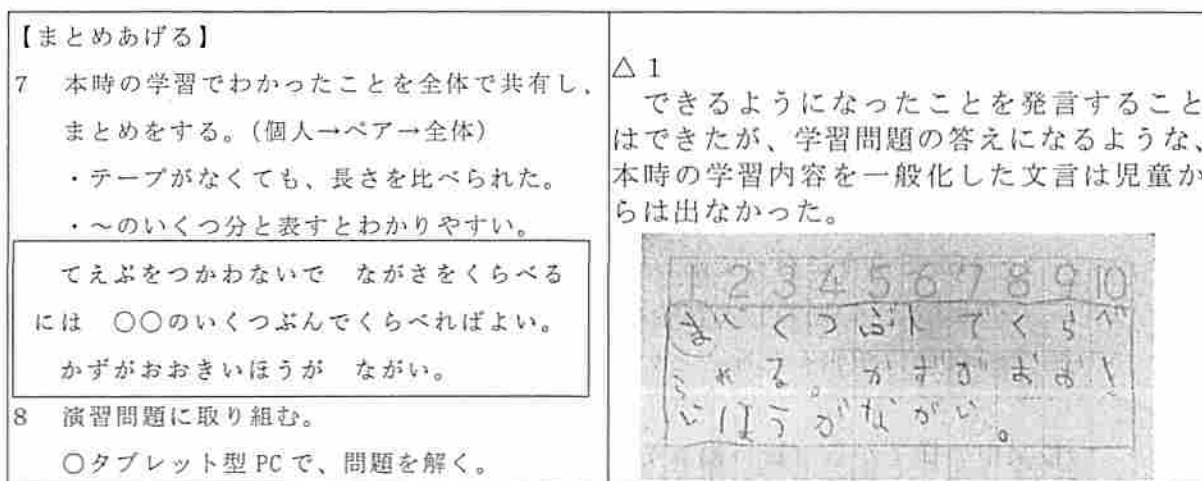 【まとめあげる】
7 本時の学習でわかったことを全体で共有し、
まとめをする。(個人→ペア→全体)
・テープがなくても、長さを比べられた。
・～のいくつ分と表すとわかりやすい。
てえぷをつかわないで ながさをくらべる
には 〇〇のいくつぶんでくらべればよい。
かずがおおきいほうが ながい。
8 演習問題に取り組む。
○タブレット型PCで、問題を解く。
△1
できるようになったことを発言すること
はできたが、学習問題の答えになるような、
本時の学習内容を一般化した文言は児童か
らは出なかった。
1 2 3 4 5 6 7 8 9 10
ま いくつぶんでくらべ
られる。かずがおおき
いほうがながい。